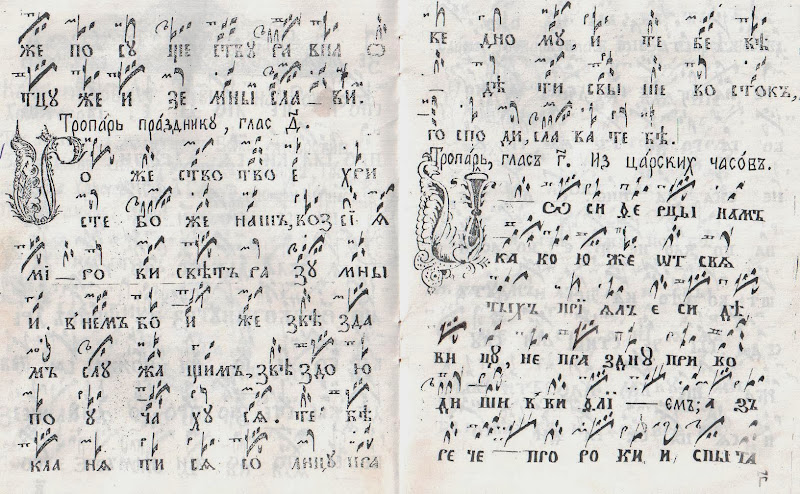 ЖЕ ПО СУ ЩЕ СТВУ РА ВНА Ѡ
ТЦУ ЖЕ И ЗЕ МНЫ СЛА — ВИ.
Тропа́рь пра́зднику, глас Д҃.
Р О ЖЕ СТВО ТВО Е ХРИ
СТЕ БО ЖЕ НАШЪ, ВОЗ СІ Я
МІ — РО ВИ СВѢТЪ РА ЗУ МНЫ
И. В'НЕМЪ БО И ЖЕ ЗВѢ ЗДА
МЪ СЛУ ЖА ЩИМЪ, ЗВѢ ЗДО Ю
ПО У ЧА ХУ СЯ. ТЕ БѢ
КЛА НЯ ТИ СЯ СО ЛНЦУ ПРА
ВЕ ДНО МУ, И ТЕ БЕ ВѢ
— ДѢ ТИ СВЫ ШЕ ВО СТОКЪ,
ГО СПО ДИ, СЛА ВА ТЕ БѢ.
Тропарь, гласъ Г҃. Из царских часо́въ.
І Ѡ СИ ФЕ РЦЫ НАМЪ
КА КО Ю ЖЕ ѾТ СВЯ
ТЫХЪ ПРІ ЯЛЪ Е СИ ДѢ
ВИ ЦУ, НЕ ПРА ЗДНУ ПРИ ВО
ДИ ШИ В'ВИ ФЛІ — ЕМЪ; А ЗЪ
РЕ ЧЕ — ПРО РО КИ И СПЫ ТА